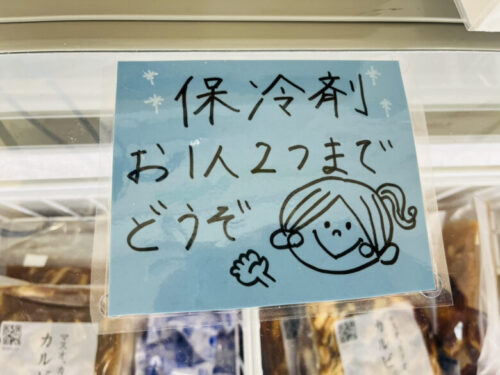 保冷剤
お1人2つまで
どうぞ
カルビ
カルビ